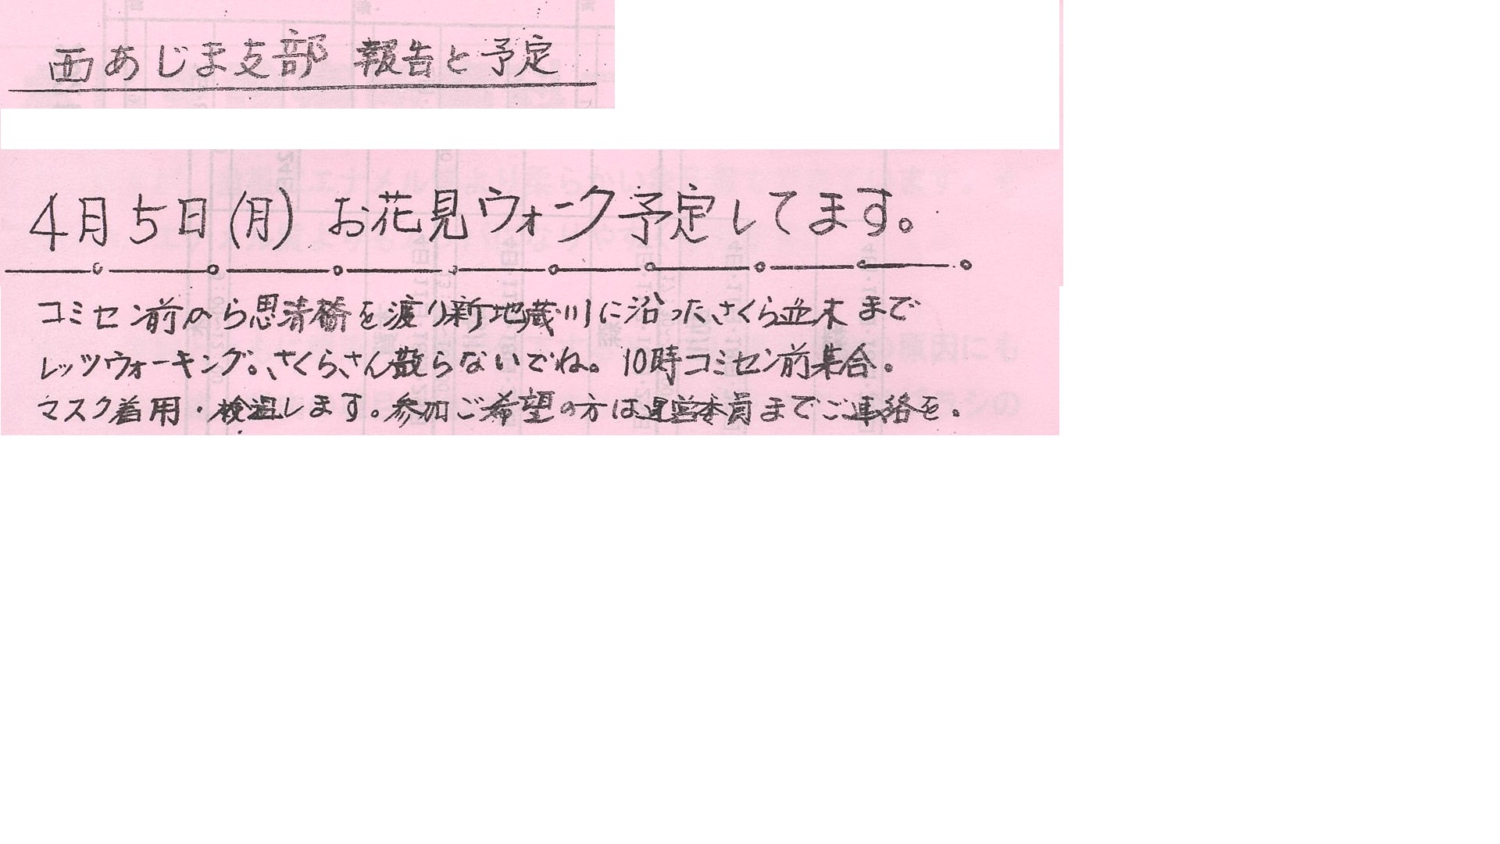 西あじま支部 報告と予定
4月5日(月) お花見ウォーク予定してます。
コミセン前から思清橋を渡り新地蔵川に沿ったさくら並木まで
レッツウォーキング。さくらさん散らないでね。10時コミセン前集合。
マスク着用・検温します。参加ご希望の方は運営委員までご連絡を。